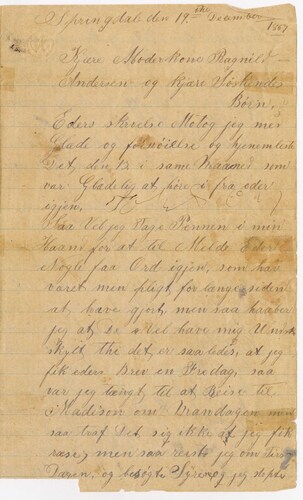 Springdal den 19de December 1887
Kjære Moderkone Ragnild
Andersen og kjære Söskende
Börn.
Eders skrivelse Motog jeg med
Glade og fornöielse og hjemenlest
Det, den 12 i same Maaned som
var Gladelig at höre i fra eder
igjen.
Saa Vel jeg Tage Pennen i min
Haand for at til Melde Eder
Nogle faa Ord igjen, som har
varet men pligt for lange siden
at have gjort, men saa haaber
jeg at, De vel have mig Unds
Skylt, thi det, er saaledes, at jeg
fik eders Brev en Fredag, saa
var jeg længt til at Reise til
Madison om Mandagen men
saa traf Det sig ikke at jeg fik
rase, men saa reiste jeg om Tirs
Dagen, og besögte Syver og jeg stopte